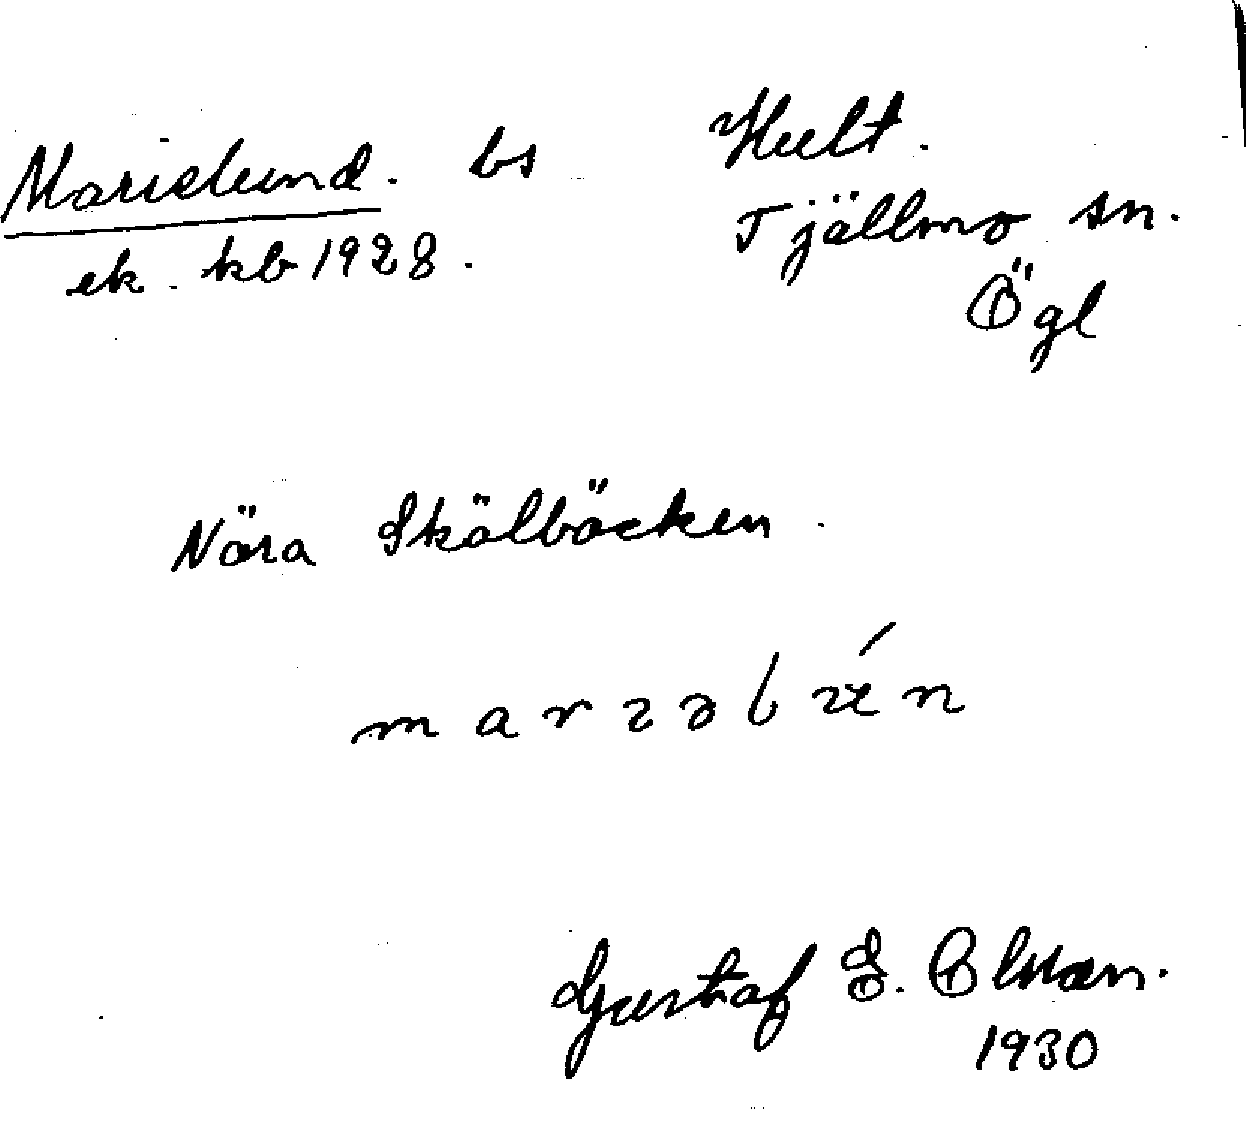 Marielund. bs Hult.
ek. kb 1928. Tjällmo sn.
Ögl
Nära Skälbäcken.
Gustaf E. Olsson.
1930